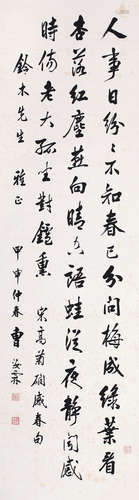 人事日紛々不知春已分梅成綠葉看
杏落紅塵燕向晴語蛙從夜靜聞感
時傷老大孤坐對鑪熏 宋高菊磵感春句
鈴木先生 雅正 甲申仲春 曹汝霖